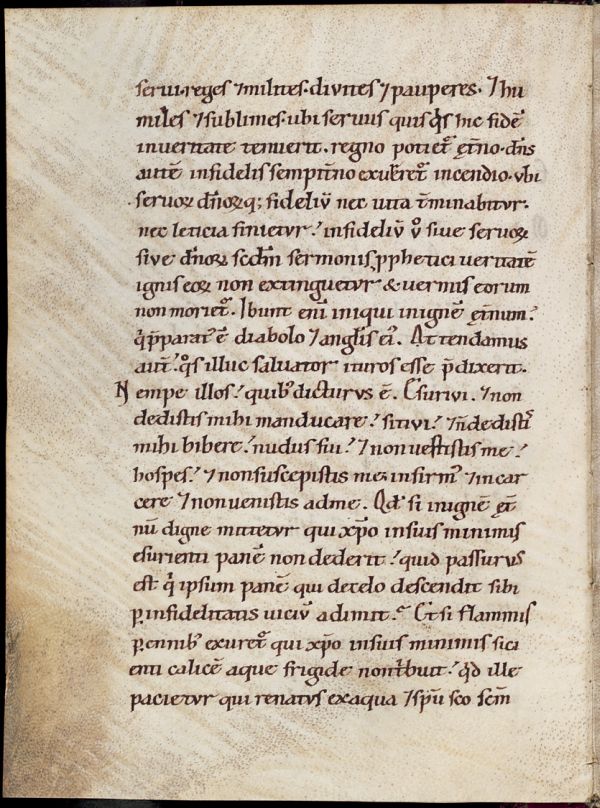 serui·reges ⁊milites·diuites ⁊pauperes· ⁊hu
miles ⁊sublimes·ubi seruus quisq̄s hic fidē
inueritate tenuerit. regno potiet᷑ ęt̄no·dn̄s
autē infidelis sempit̄no exuret᷑ incendio·ubi
seruoꝝ dn̄oꝝq; fideliū nec uita t̄minabitur·
nec leticia finietur! infideliū ů siue seruoꝝ
siue dn̄oꝝ scdm̄ sermonis ꝓphetici ueritatē
ignis eoꝝ non extinguetur & uermis eorum
non moriet᷑. Ibunt eni iniqui inignē ęt̄num!
q̇ p̄parat᷑ ē diabolo ⁊anglis ei᷒. Attendamus
aut̄! q̊s illuc saluator ituros esse p̄dixerit.
Nempe illos! quib᷒ dicturus ē. Esuriui. ⁊non
dedistis mihi manducare! sitiui! ⁊n̄dedistis
mihi bibere! nudus fui! ⁊nonuestistis me!
hospes! ⁊nonsuscepistis me·infirm᷒ ⁊incar
cere ⁊nonuenistis adme. Qd̄ si inignē ęt̄
nū digne mittetur qui xp̄o insuis minimis
esurienti panē non dederit! quid passurus
est q̇ ipsum panē qui decelo descendit sibi
ꝑinfidelitatis uiciū adimit? Et si flammis
ꝑennib᷒ exuret᷑ qui xp̄o insuis minimis sici
enti calicē aque frigide nont̄buit! qd̄ ille
pacietur qui renatus exaqua ⁊sp̄u sc̄o sc̄m